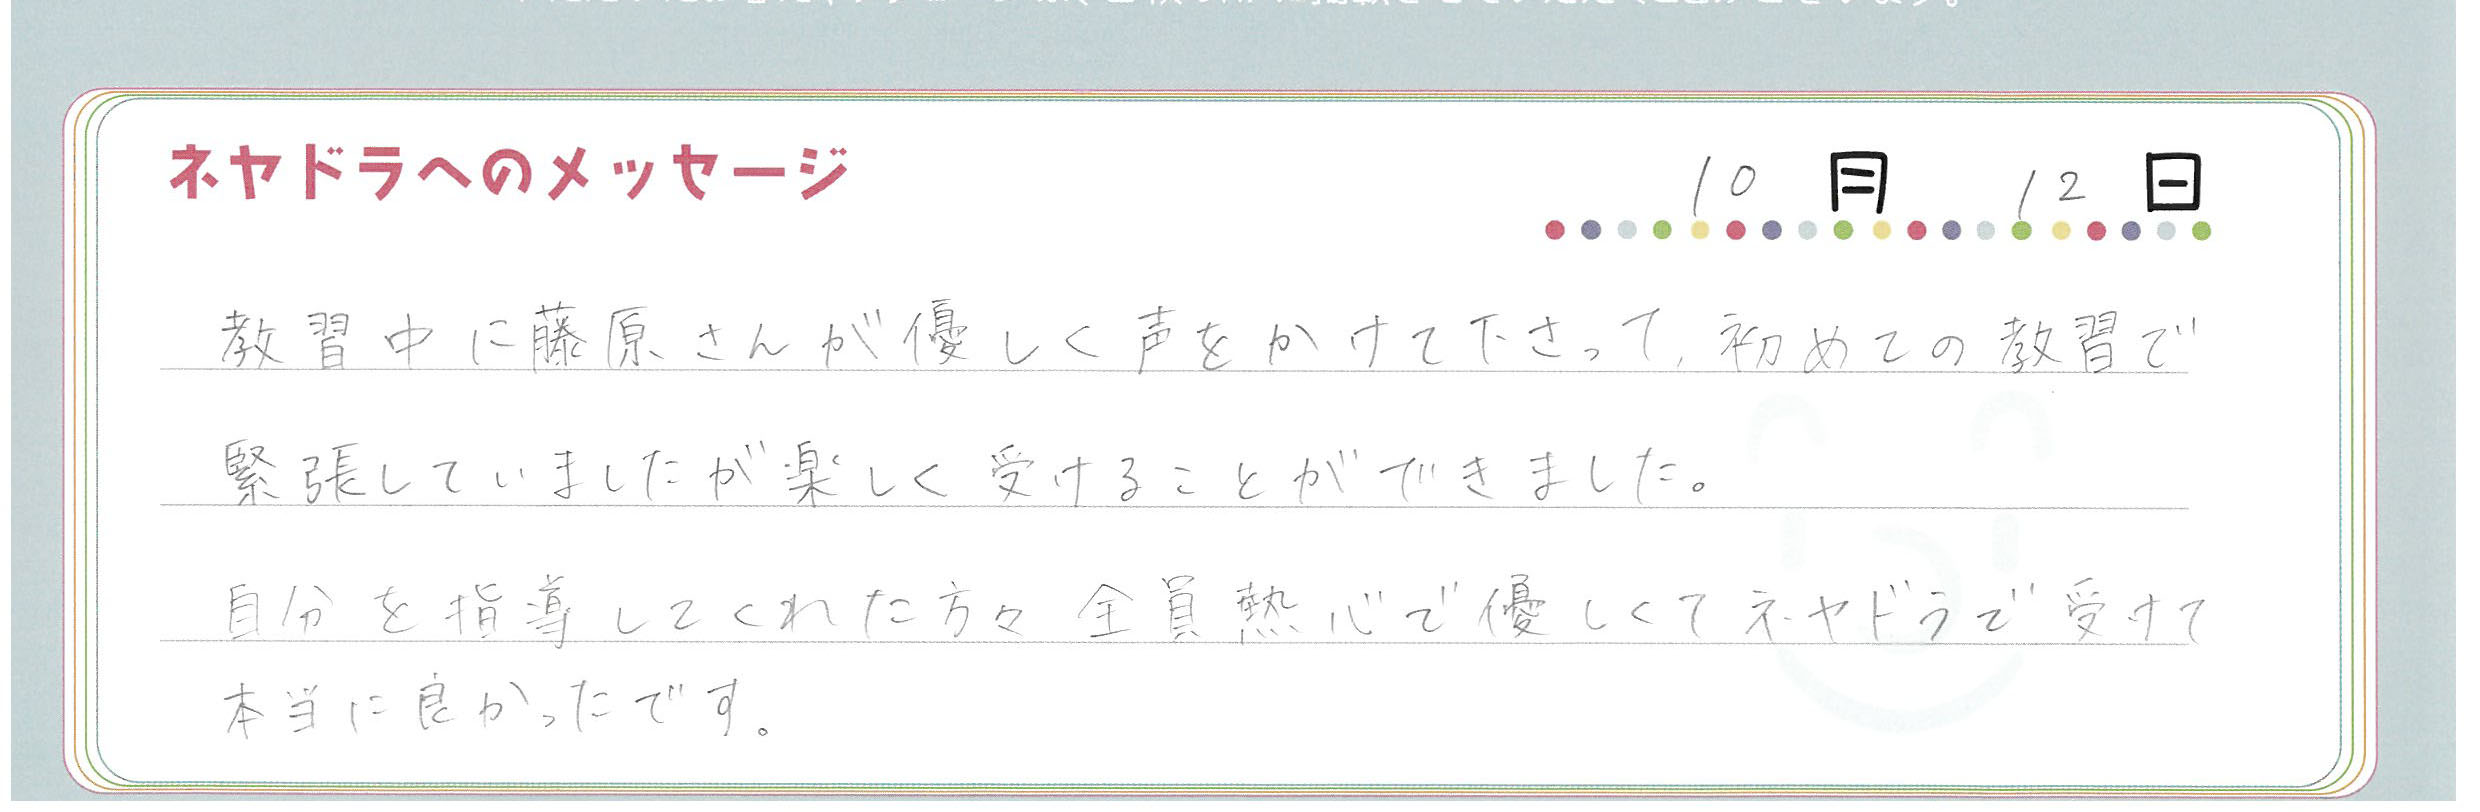 ネヤドラへのメッセージ
10月12日
教習中に藤原さんが優しく声をかけて下さって、初めての教習で
緊張していましたが楽しく受けることができました。
自分を指導してくれた方々全員熱心で優しくてネヤドラで受けて
本当に良かったです。